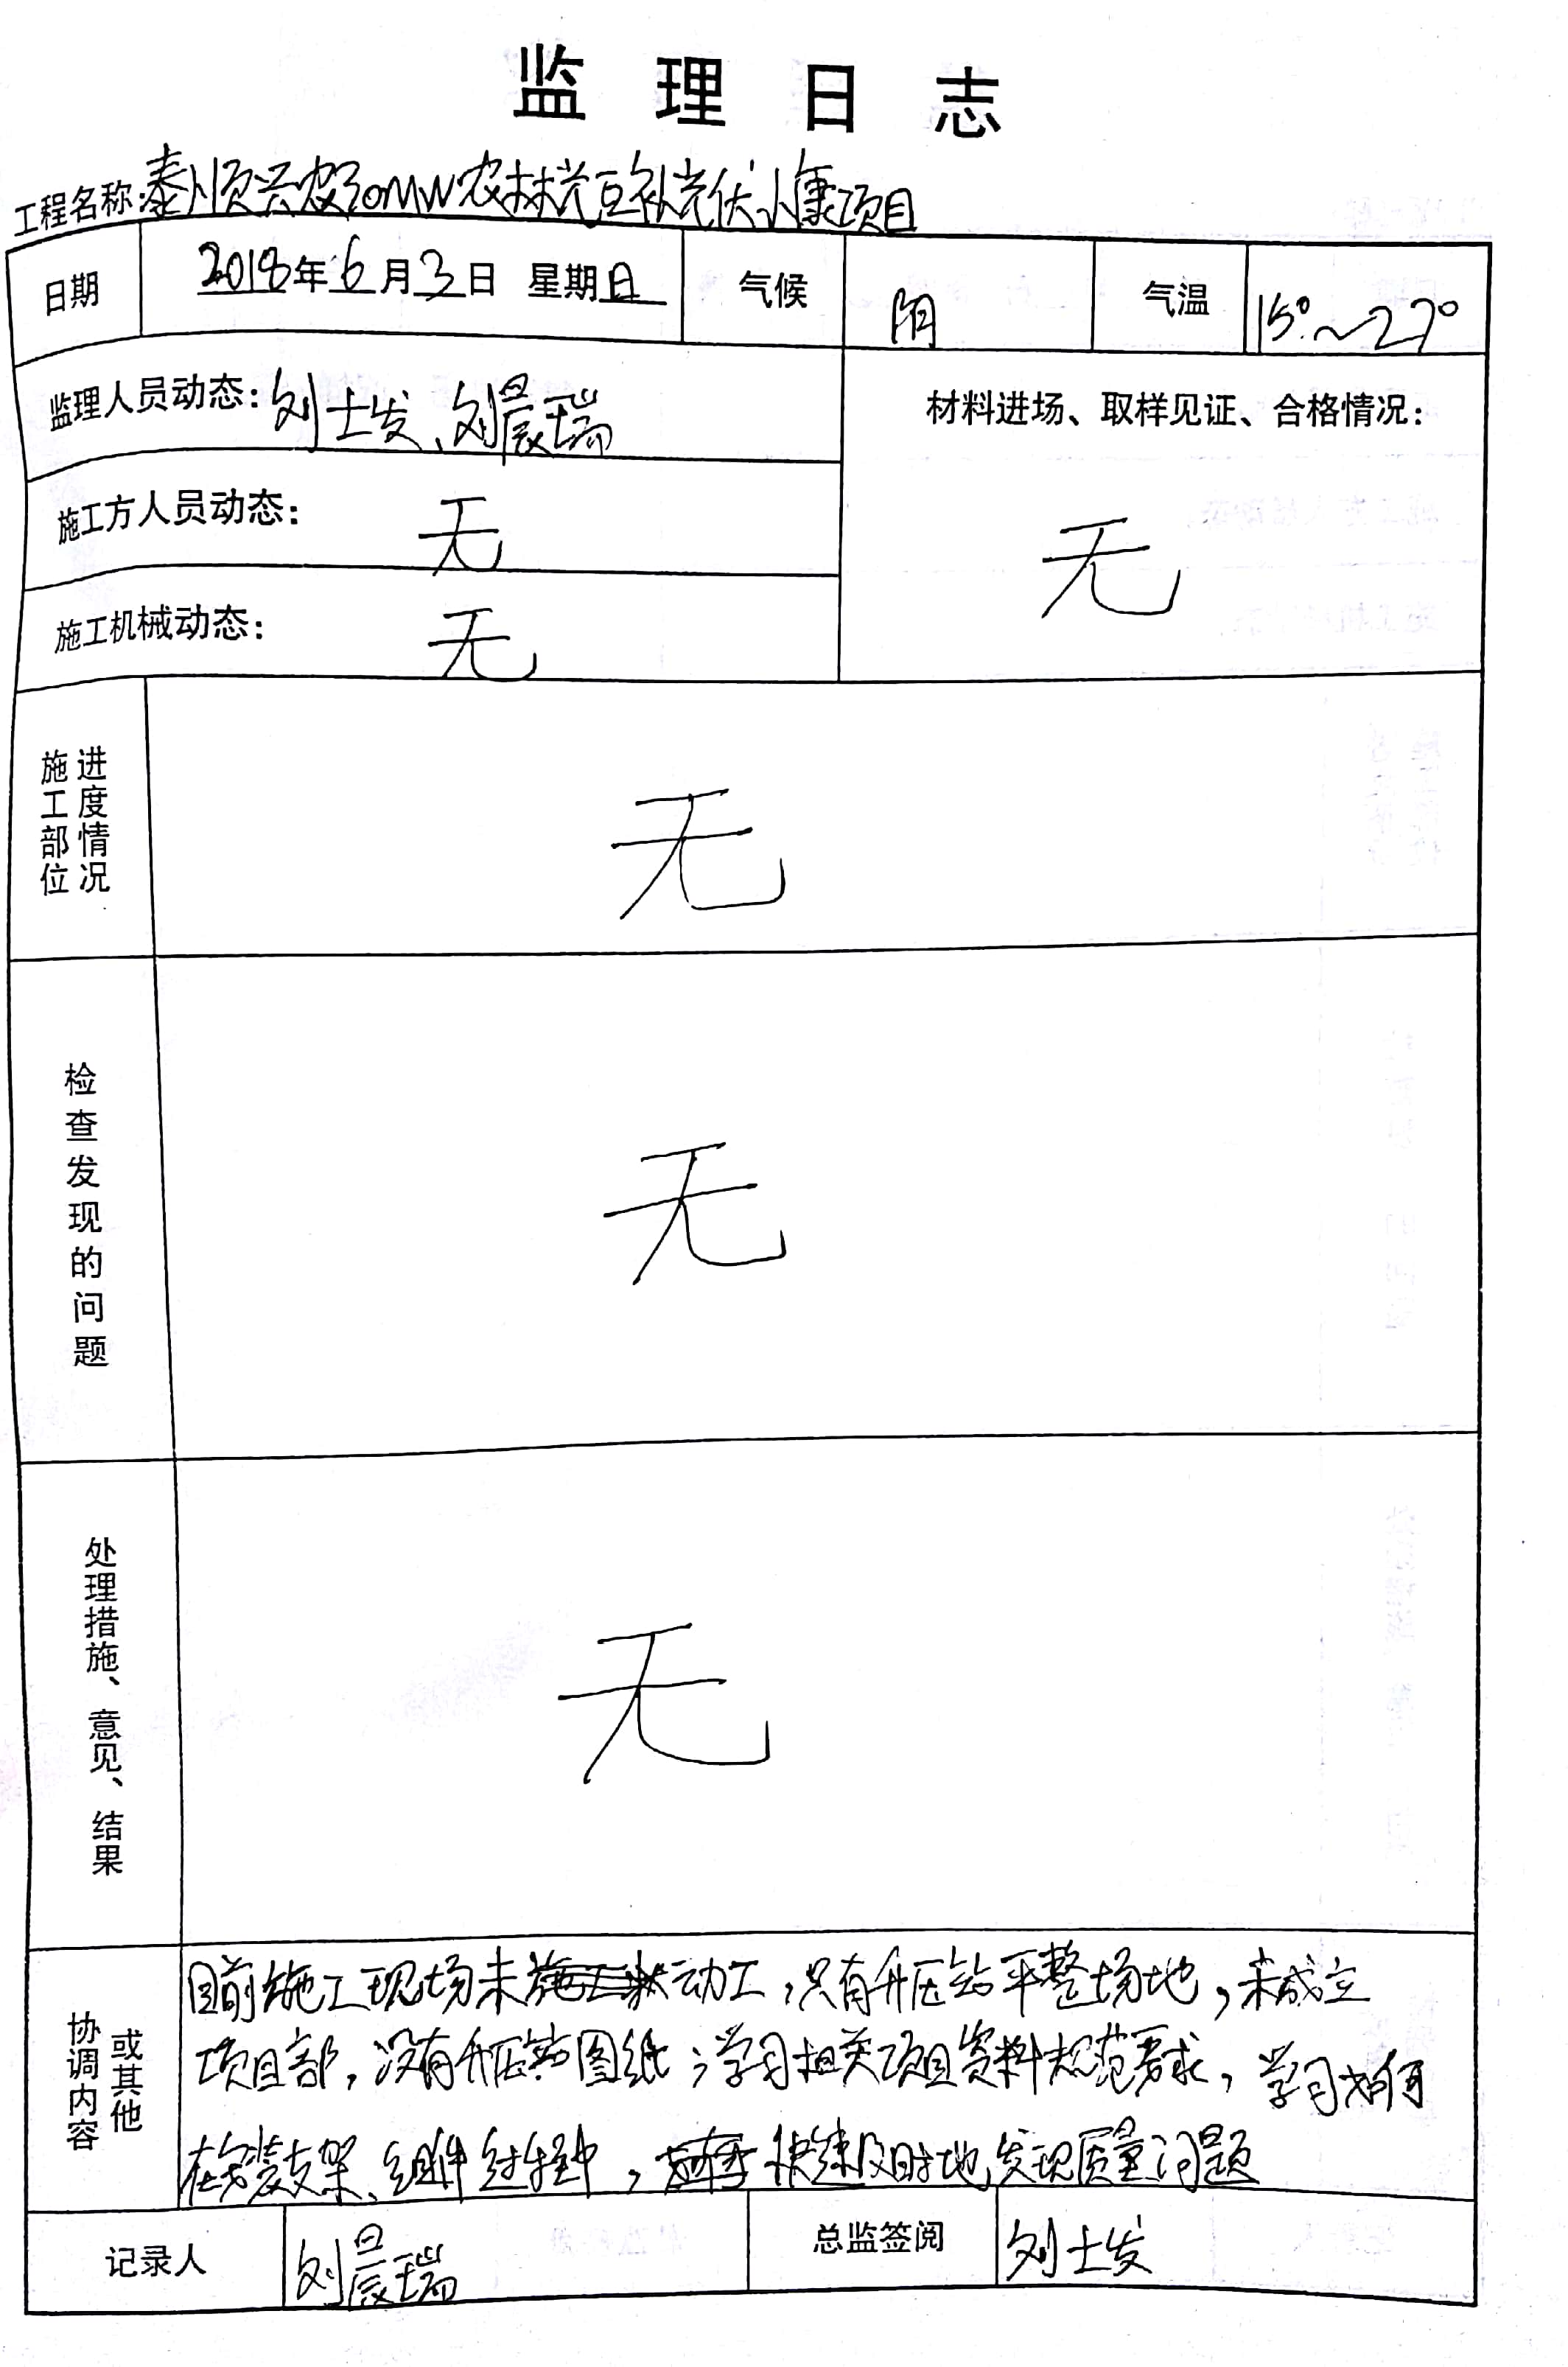 监理日志
工程名称:泰顺兴农30MW农林光互补光伏小康项目
日期 2018年6月3日 星期日 气候 阴 气温 15°~27°
监理人员动态:刘士发、刘晨瑞
材料进场、取样见证、合格情况:
无
施工方人员动态: 无
施工机械动态: 无
施工部位 进度情况
无
检查发现的问题
无
处理措施、意见、结果
无
协调内容 或其他
目前施工现场未动工,只有升压站平整场地,未成立
项目部,没有升压站图纸;学习相关项目资料规范要求,学习如何
在安装支架、组件过程中,快速及时地发现质量问题
记录人 刘晨瑞 总监签阅 刘士发